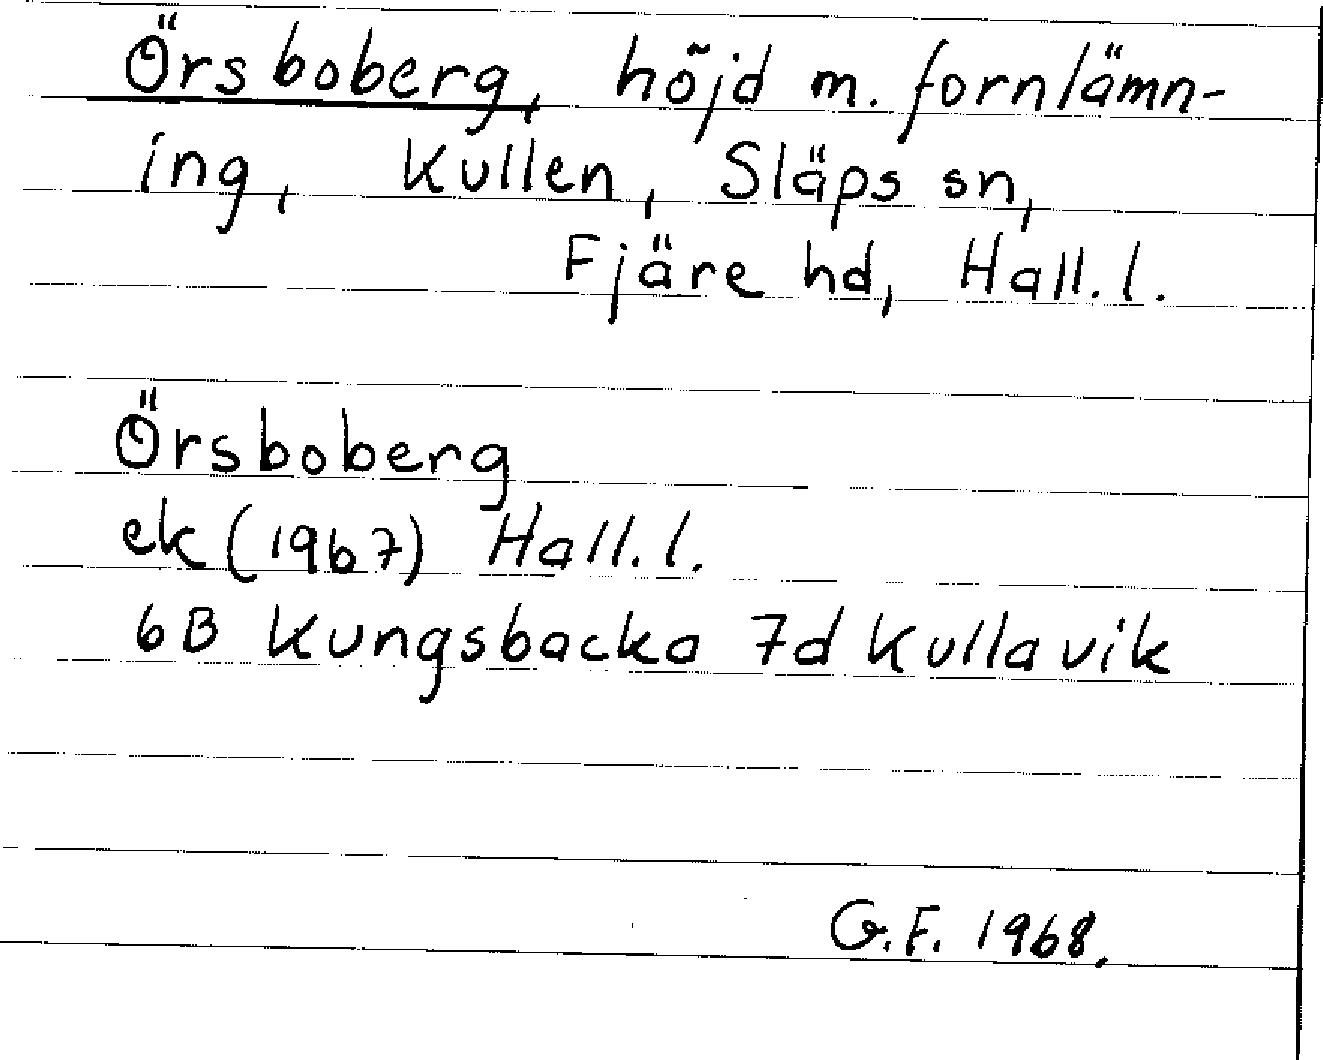 Örsboberg, höjd m. fornlämn-
ing, Kullen, Släps sn,
Fjäre hd, Hall. l.
Örsboberg
ek (1967) Hall. l.
6B Kungsbacka 7d Kullavik
G.F. 1968.